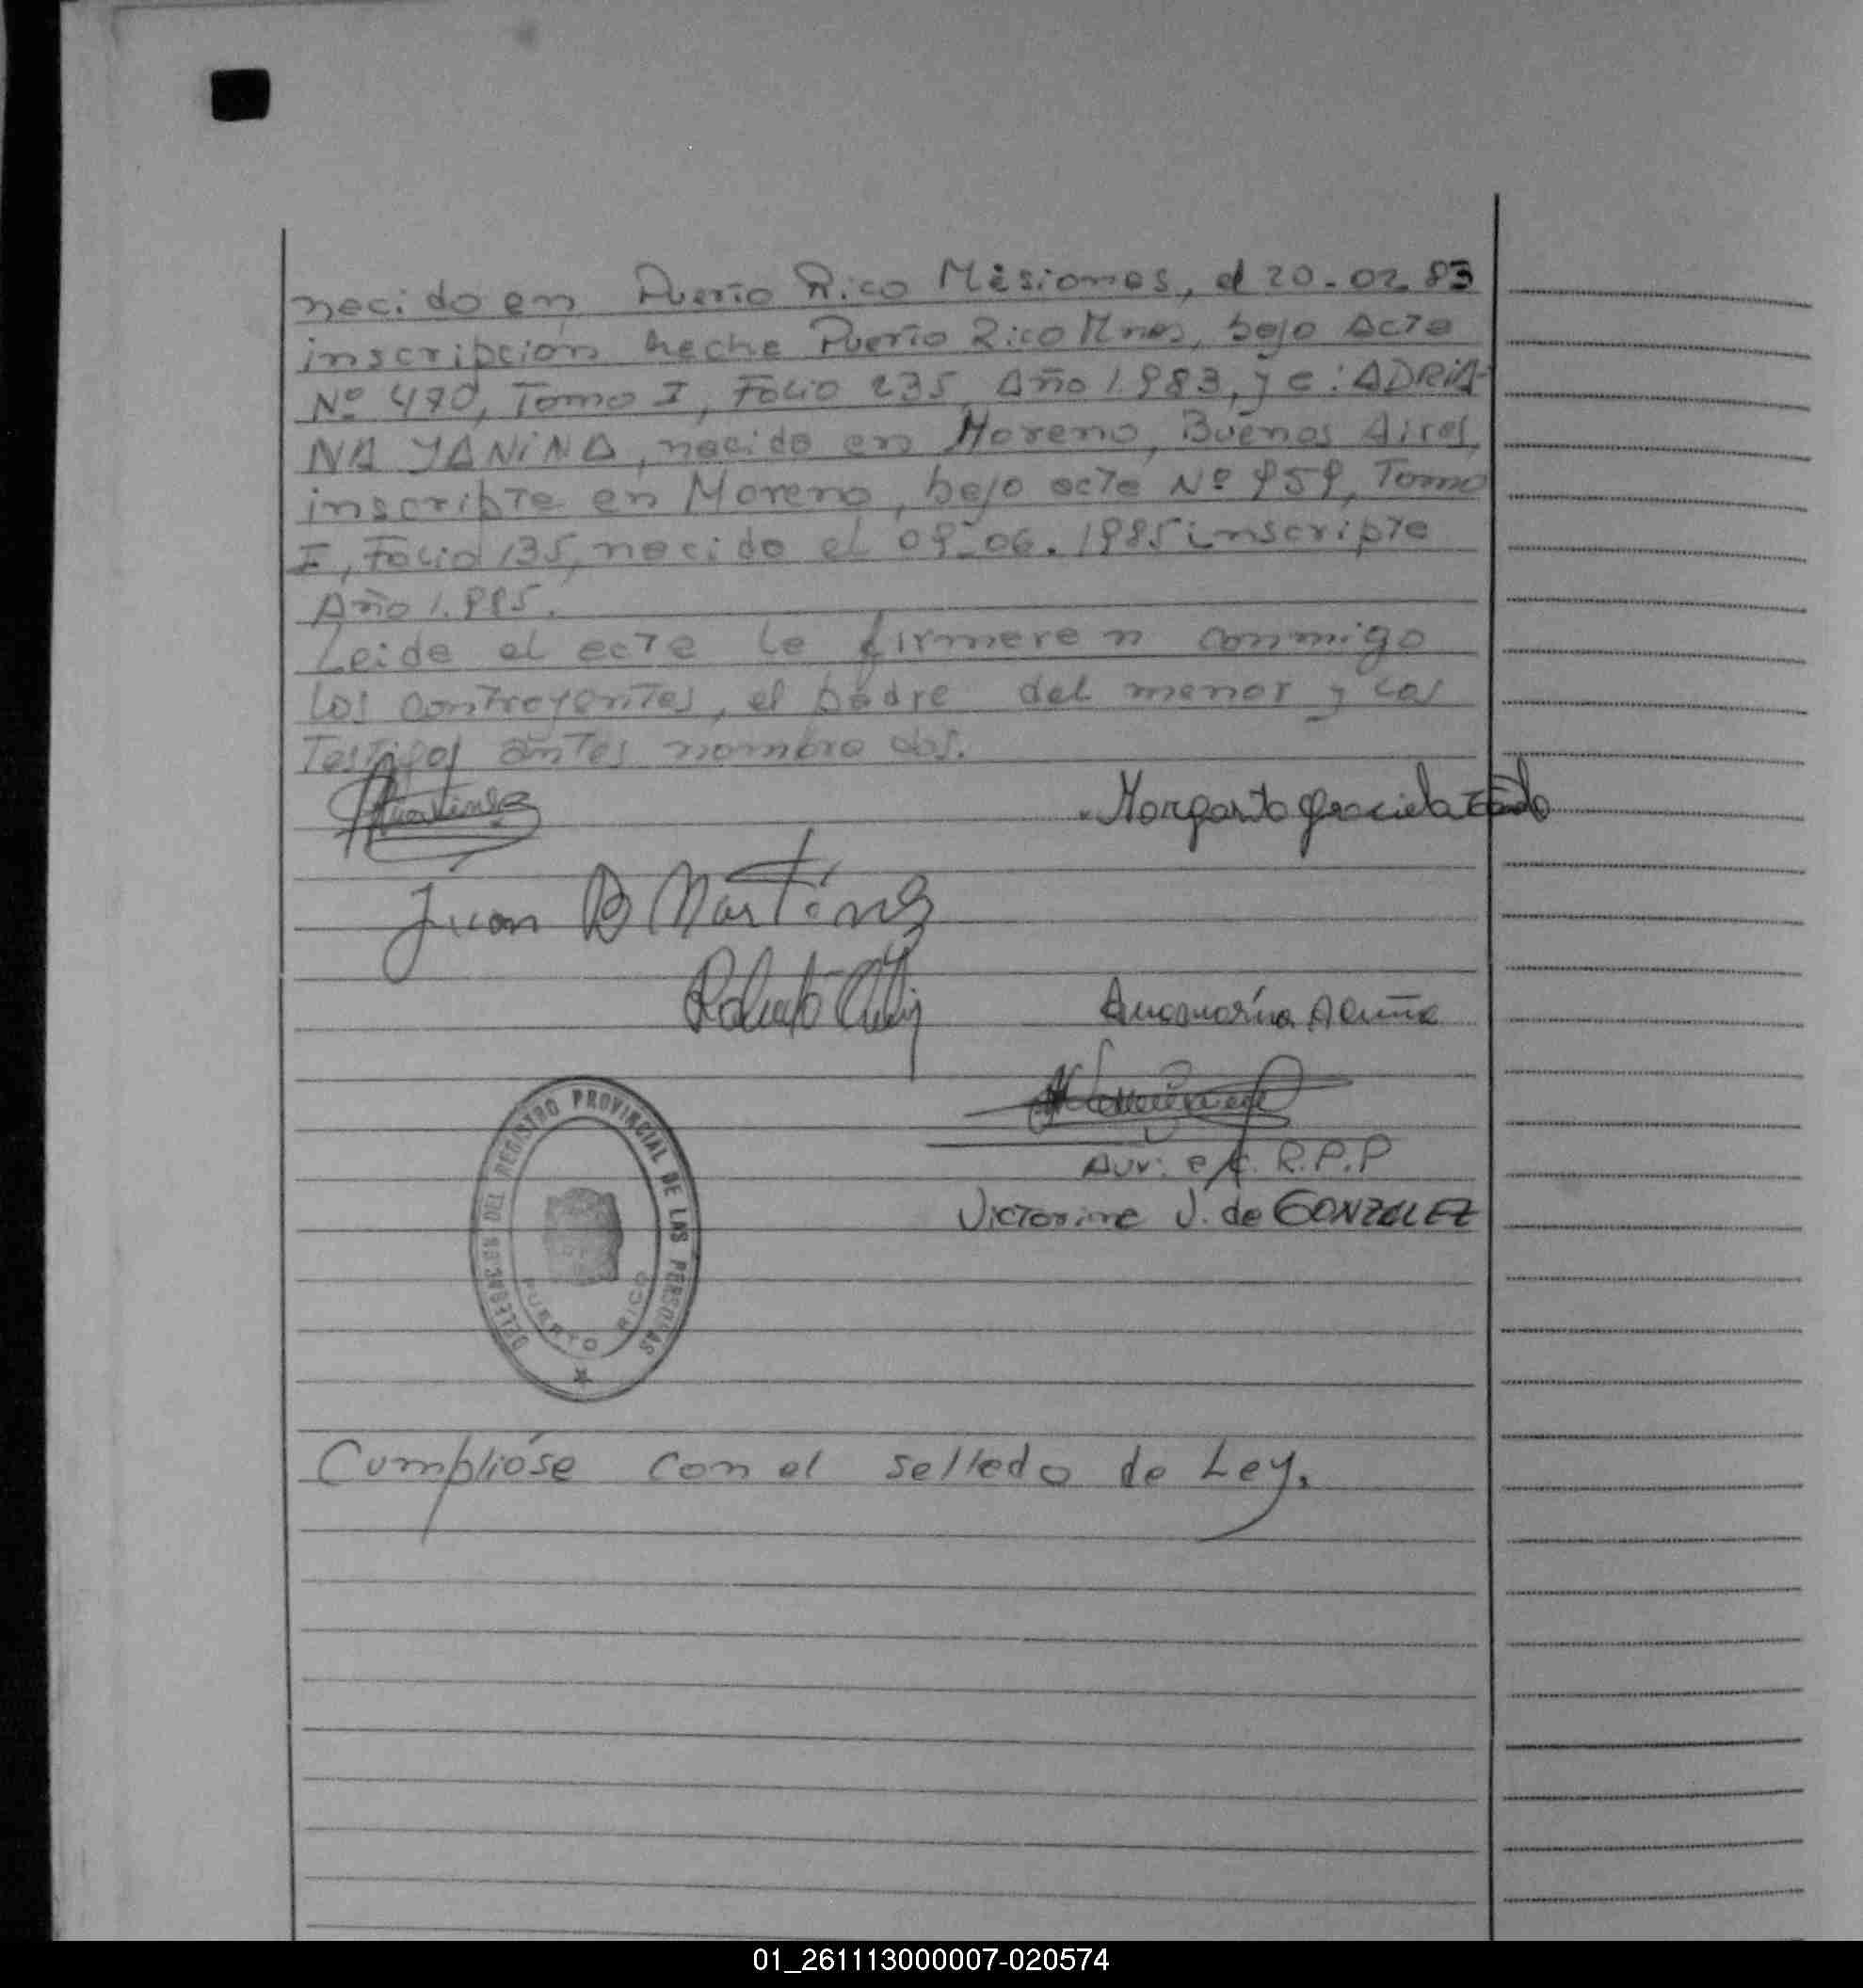 nacido en Puerto Rico Misiones, el 20-02-83
inscripción hecha Puerto Rico Mnes, bajo Acta
Nº 470, Tomo I, Folio 235, Año 1.983, y a: ADRIA-
NA YANINA, nacida en Moreno, Buenos Aires,
inscripta en Moreno, bajo acta Nº 959, Tomo
I, Folio 135, nacida el 09-06.1985 inscripta
Año 1.985.
Leida el acta la firmaran conmigo
los contrayentes, el padre del menor y los
Testigos antes nombrados.
Margarita Graciela
Juan D Martínez
Roberto
Ana maría Acuña
R.P.P
Victorina V. de GONZALEZ
DELEGACION DEL REGISTRO PROVINCIAL DE LAS PERSONAS
PUERTO RICO
Cumplióse con el sellado de Ley.
01_261113000007-020574